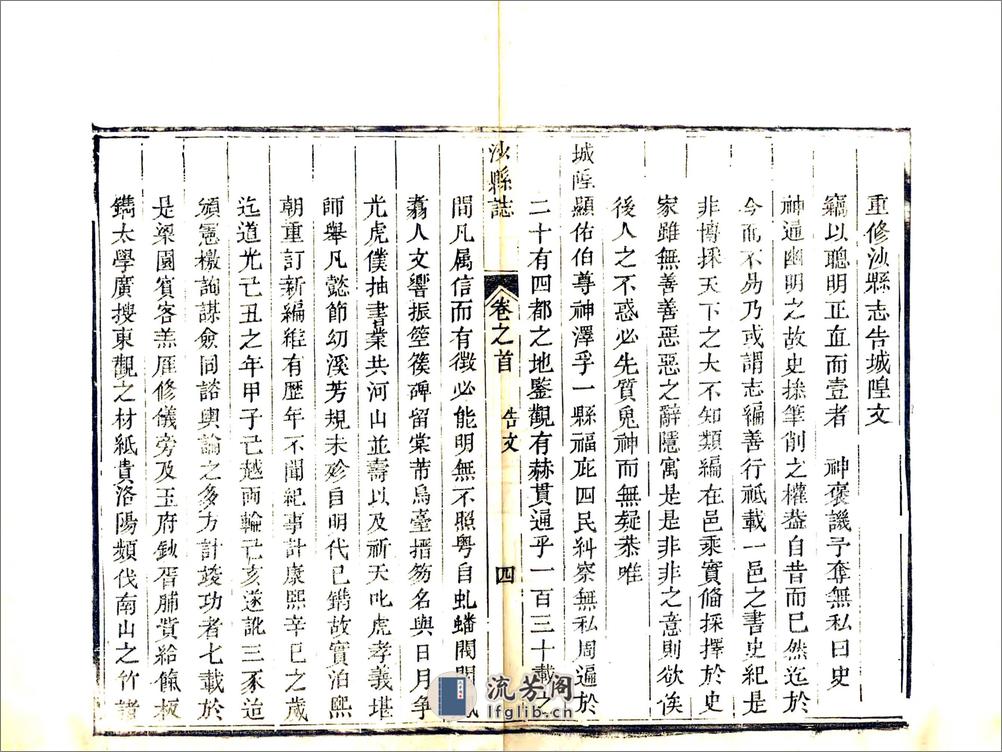 重修沙縣志告城隍文
竊以聰明正直而壹者　神褒譏予奪無私曰史
神通幽明之故史操筆削之權葢自昔而已然迄於
今而不易乃或謂志編善行祗載一邑之書史紀是
非博採天下之大不知類編在邑乘實備採擇於史
家雖無善善惡惡之辭隱寓是是非非之意則欲俟
後人之不惑必先質鬼神而無疑恭唯
城隍顯佑伯尊神澤孚一縣福庇四民糾察無私周遍於
二十有四都之地鑒觀有赫貫通乎一百三十載之
沙縣誌
卷之首
告文
四
間凡屬信而有徵必能明無不照粤自虬蟠閥閱
翥人文響振箜篌碑留棠芾烏臺搢笏名與日月爭
光虎僕抽書業共河山並壽以及祈天叱虎孝義堪
師舉凡懿節幼溪芳規未殄自明代已鐫故實泊熙
朝重訂新編維有歷年不聞紀事計康熙辛巳之歲
迄道光己丑之年甲子已越兩輪己亥遂訛三豕迨
頒憲檄詢謀僉同諮輿論之多方計竣功者七載於
是梁園賓客羔雁修儀旁及玉府鈥胥脯貲給餼板
鐫太學廣搜東觀之材紙貴洛陽頻伐南山之竹諸
流芳閣
lfglib.cn